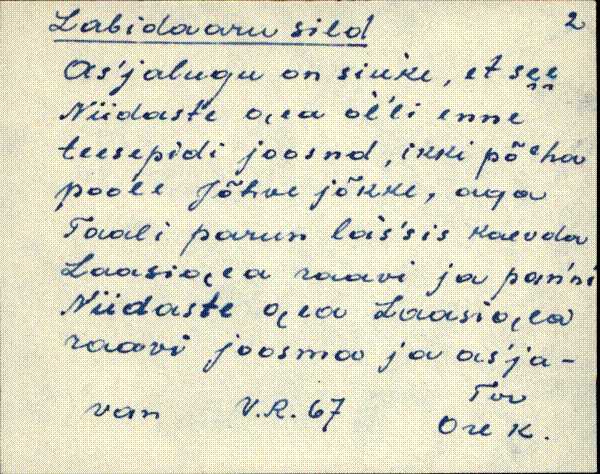 Labidaaru sild
2
As'jalugu on siuke, et see
Niidaste oja ol'li enne
teesepidi joosnd, ikki põha
poole Jõhve jõkke, aga
Taali parun läs'sis kaevda
Laasioja raavi ja pan'ni
Niidaste oja Laasioja
raavi joosma ja as'ja-
van V.R. 67 Tor
Ore K.